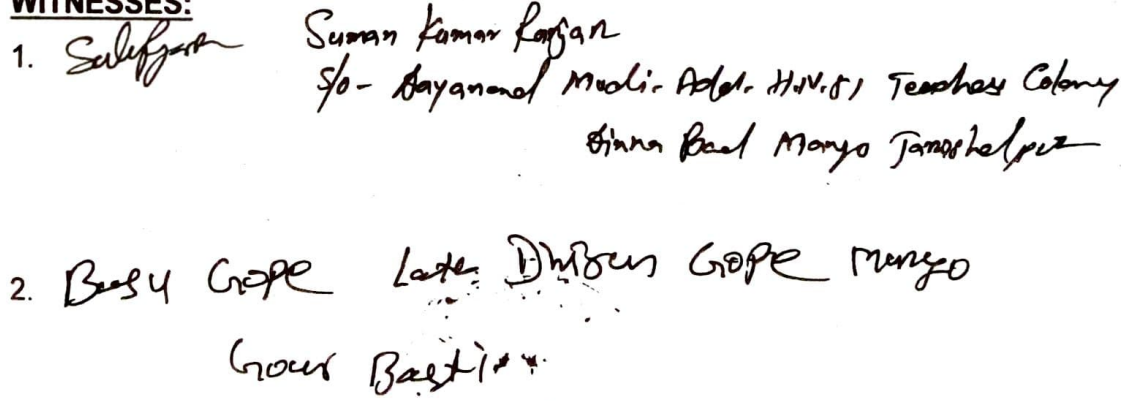 WITNESSES:
1. Suman Kumar Ranjan
S/o - Dayanand Modi. Add. H.N. 51 Teachers Colony
Dimna Road Mango Jamshedpur
2. Basu Gope Late. Dhiren Gope Mango
Gour Basti